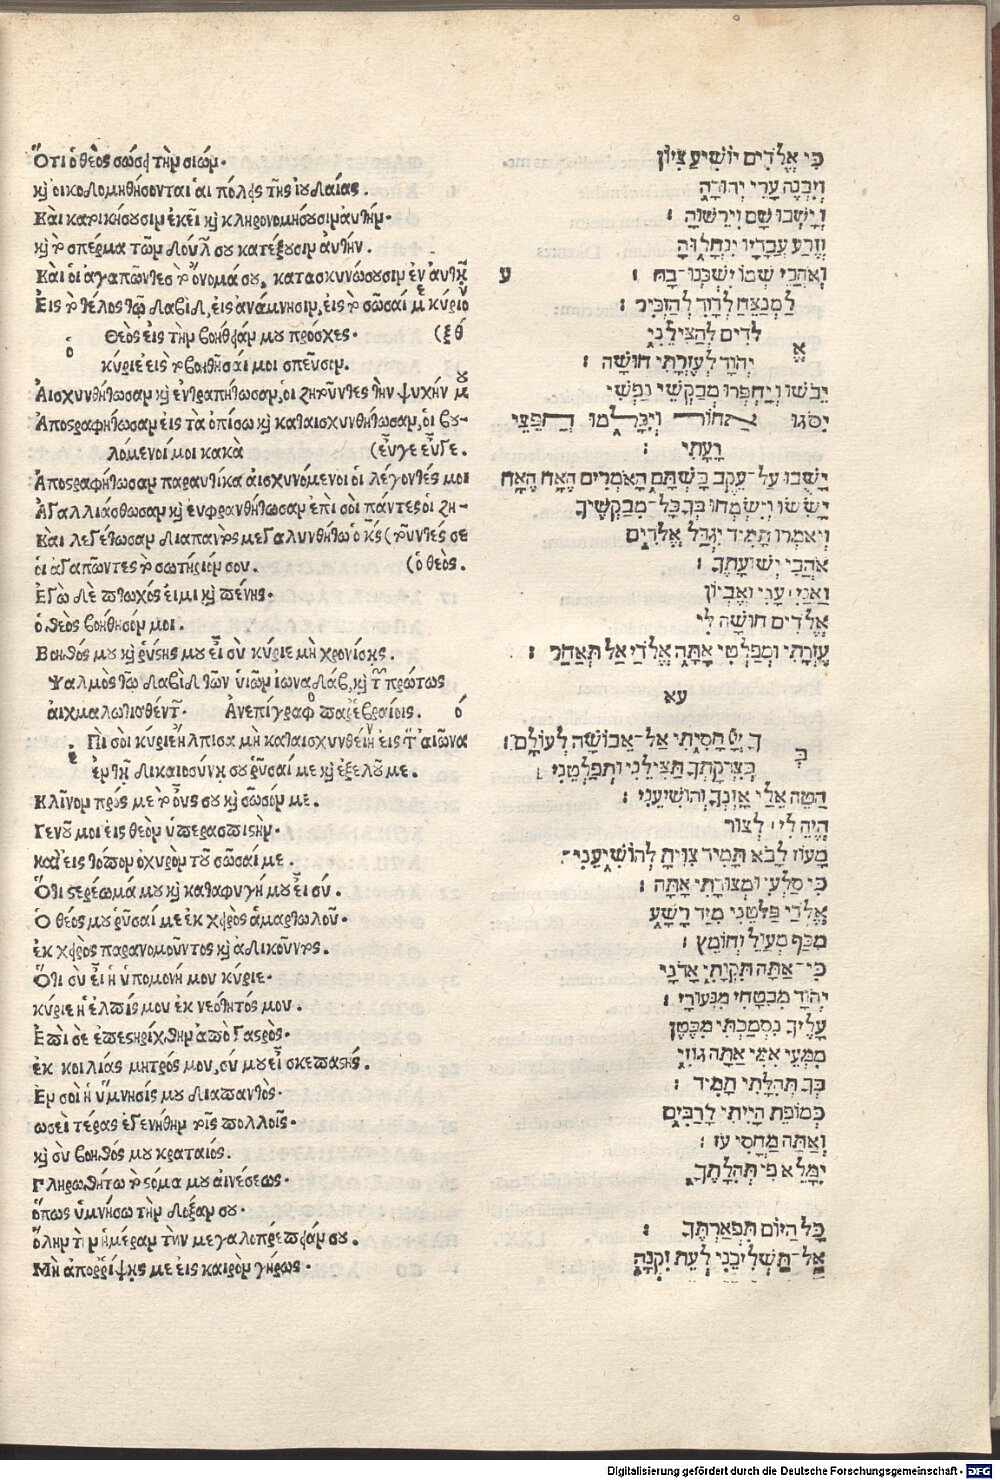 Ὅτι ὁ θεὸς σώσει τὴν σιών.
κỳ οἰκοδομηθήσονται αἱ πόλεις τῆς ἰουδαίας.
Καὶ κατοικήσουσιν ἐκεῖ κỳ κληρονομήσουσιν αὐτήν.
κỳ τὸ σπέρμα τῶν δούλων σου κατέξουσιν αὐτήν.
Καὶ οἱ ἀγαπῶντες τὸ ὄνομά σου, κατασκηνώσουσιν ἐν αὐτῇ
Εἰς τὸ τέλος τῷ δαβὶδ, εἰς ἀνάμνησιν, εἰς τὸ σῶσαί με κύριον
Θεὸς εἰς τὴν βοήθειάν μου πρόσχες.
ὁ
κύριε εἰς τὸ βοηθῆσαί μοι σπεῦσον.
Αἰσχυνθήτωσαν κỳ ἐντραπήτωσαν, οἱ ζητοῦντες τὴν ψυχήν μου
Ἀποστραφήτωσαν εἰς τὰ ὀπίσω κỳ καταισχυνθήτωσαν, οἱ βου-
λόμενοί μοι κακὰ (εὖγε εὖγε.
Ἀποστραφήτωσαν παραυτίκα αἰσχυνόμενοι οἱ λέγοντές μοι
Ἀγαλλιάσθωσαν κỳ εὐφρανθήτωσαν ἐπὶ σοὶ πάντες οἱ ζη-
Καὶ λεγέτωσαν διαπαντὸς μεγαλυνθήτω ὁ κ̅ς̅ (τοῦντές σε
οἱ ἀγαπῶντες τὸ σωτήριόν σου. (ὁ θεός.
Ἐγὼ δὲ πτωχός εἰμι κỳ πένης.
ὁ θεὸς βοήθησόν μοι.
Βοηθός μου κỳ ῥύστης μου εἶ σὺ κύριε μὴ χρονίσῃς.
Ψαλμὸς τῷ δαβὶδ τῶν υἱῶν ἰωναδάβ, κỳ τῶν πρώτως
αἰχμαλωτισθέντων. Ἀνεπίγραφος παρ' ἑβραίοις. ό
ε
Πὶ σοὶ κύριε ἤλπισα μὴ καταισχυνθείην εἰς τὸν αἰῶνα
ἐν τῇ δικαιοσύνῃ σου ῥῦσαί με κỳ ἐξελοῦ με.
Κλῖνον πρός με τὸ οὖς σου κỳ σῶσόν με.
Γενοῦ μοι εἰς θεὸν ὑπερασπιστὴν.
καὶ εἰς τόπον ὀχυρὸν τοῦ σῶσαί με.
Ὅτι στερέωμά μου κỳ καταφυγή μου εἶ σύ.
Ὁ θεός μου ῥῦσαί με ἐκ χειρὸς ἁμαρτωλοῦ.
ἐκ χειρὸς παρανομοῦντος κỳ ἀδικοῦντος.
Ὅτι σὺ εἶ ἡ ὑπομονή μου κύριε.
κύριε ἡ ἐλπίς μου ἐκ νεότητός μου.
Ἐπὶ σὲ ἐπεστηρίχθην ἀπὸ γαστρὸς.
ἐκ κοιλίας μητρός μου, σύ μου εἶ σκεπαστής.
Ἐν σοὶ ἡ ὕμνησίς μου διαπαντὸς.
ὡσεὶ τέρας ἐγενήθην τοῖς πολλοῖς.
κỳ σὺ βοηθός μου κραταιός.
Πληρωθήτω τὸ στόμα μου αἰνέσεως.
ὅπως ὑμνήσω τὴν δόξαν σου.
ὅλην τὴν ἡμέραν τὴν μεγαλοπρέπειάν σου.
Μὴ ἀπορρίψῃς με εἰς καιρὸν γήρως.
כִּי אֱלֹדִים יוֹשִׁיעַ צִיּוֹן
וְיִבְנֶה עָרֵי יְהוּדָה
וְיָשְׁבוּ שָׁם וִירֵשׁוּהָ :
וְזֶרַע עֲבָדָיו יִנְחָלוּהָ
וְאֹהֲבֵי שְׁמוֹ יִשְׁכְּנוּ־בָהּ : ע
לַמְנַצֵּחַ לְדָוִד לְהַזְכִּיר :
א
לדִים לְהַצִּילֵנִי
יְהוָֹד לְעֶזְרָתִי חוּשָׁה :
יֵבֹשׁוּ וְיַחְפְּרוּ מְבַקְשֵׁי נַפְשִׁי
יִסֹּגוּ אָחוֹר וְיִכָּלְמוּ חֲפֵצֵי
רָעָתִי :
יָשֻׁבוּ עַל־עֵקֶב בָּשְׁתָּם הָאֹמְרִים הֶאָח הֶאָח
יָשִׂשׂוּ וְיִשְׂמְחוּ בְּךָ כָּל־מְבַקְשֶׁיךָ
וְיֹאמְרוּ תָמִיד יִגְדַּל אֱלֹדִים
אֹהֲבֵי יְשׁוּעָתֶךָ :
וַאֲנִי עָנִי וְאֶבְיוֹן
אֱלֹדִים חוּשָׁה לִּי
עֶזְרָתִי וּמְפַלְטִי אַתָּה אֱלֹדַי אַל תְּאַחַר :
עא
בְּ
ךָ יְיָ חָסִיתִי אַל־אֵבוֹשָׁה לְעוֹלָם :
בְּצִדְקָתְךָ תַּצִּילֵנִי וּתְפַלְּטֵנִי :
הַטֵּה אֵלַי אָזְנְךָ וְהוֹשִׁיעֵנִי :
הֱיֵה לִי לְצוּר
מָעוֹז לָבֹא תָּמִיד צִוִּיתָ לְהוֹשִׁיעֵנִי
כִּי סַלְעִי וּמְצוּדָתִי אָתָּה :
אֱלֹדַי פַּלְּטֵנִי מִיַּד רָשָׁע
מִכַּף מְעַוֵּל וְחוֹמֵץ :
כִּי־אַתָּה תִקְוָתִי אֲדֹנָי
יְהוָֹד מִבְטַחִי מִנְּעוּרָי :
עָלֶיךָ נִסְמַכְתִּי מִבֶּטֶן
מִמְּעֵי אִמִּי אַתָּה גוֹזִי
בְּךָ תְהִלָּתִי תָמִיד :
כְּמוֹפֵת הָיִיתִי לְרַבִּים
וְאַתָּה מַחֲסִי עֹז :
יִמָּלֵא פִי תְּהִלָּתֶךָ
כָּל הַיּוֹם תִּפְאַרְתֶּךָ :
אַל־תַּשְׁלִיכֵנִי לְעֵת זִקְנָה
Digitalisierung gefördert durch die Deutsche Forschungsgemeinschaft - DFG